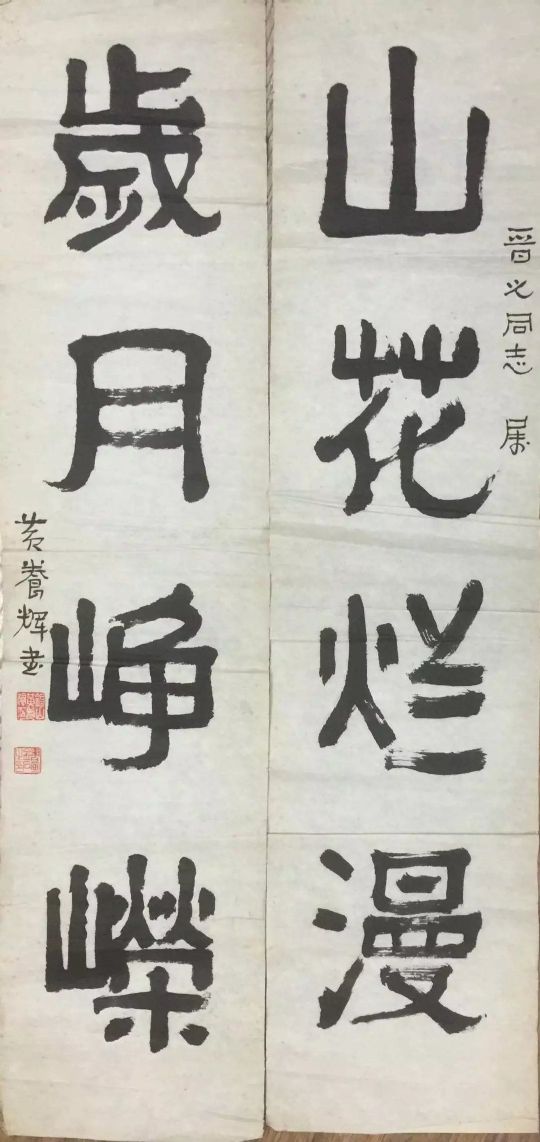 晋义同志 属
山花烂漫
歲月峥嶸
黄養辉书